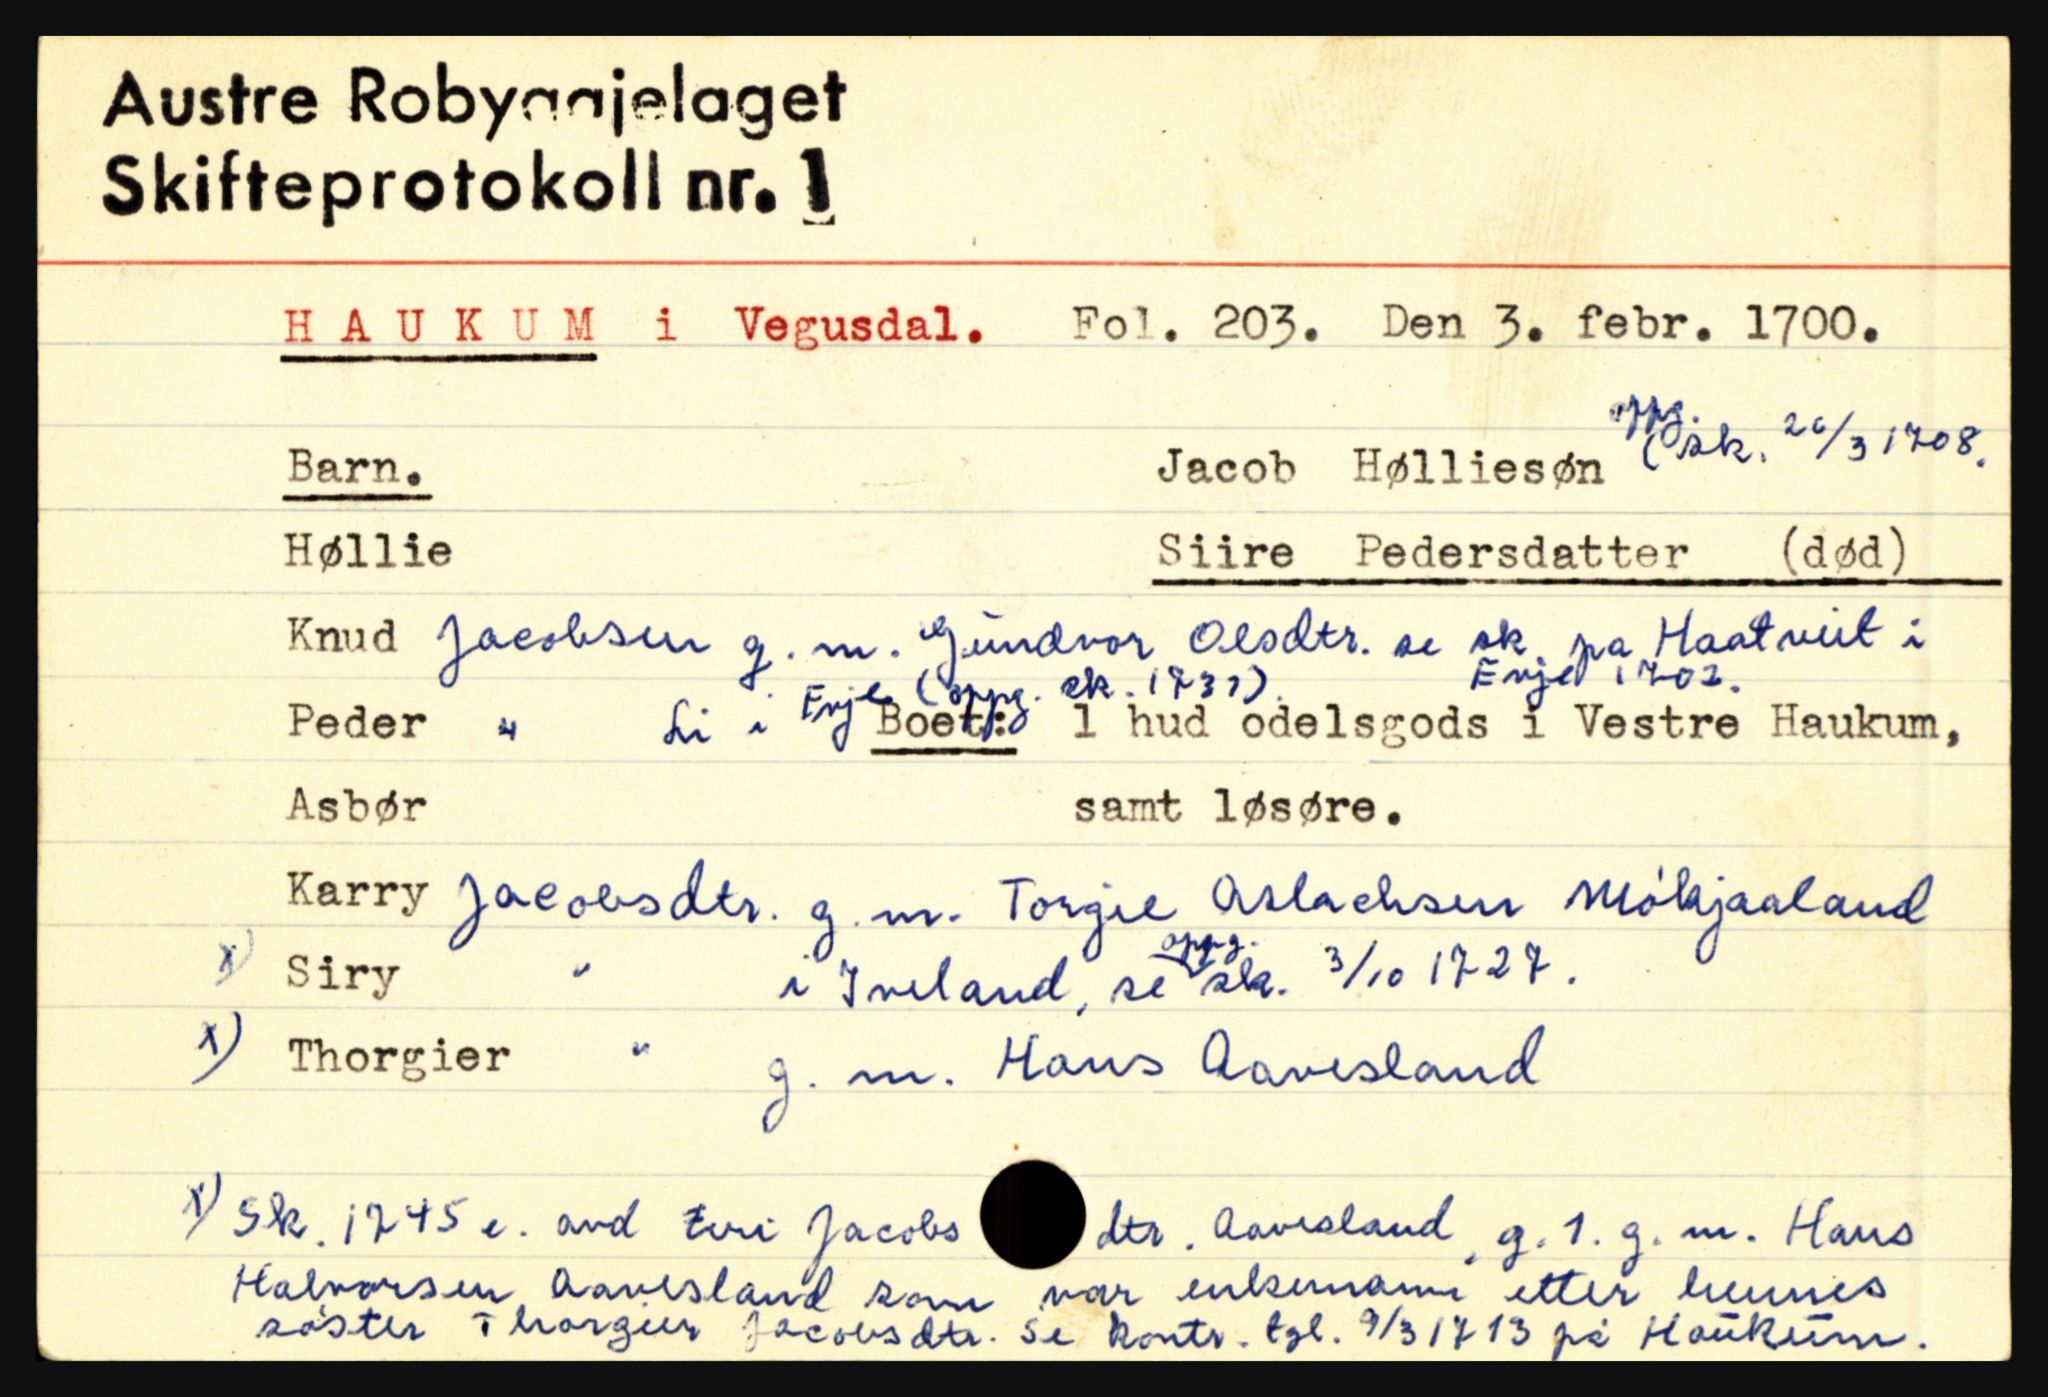 Austre Robyggjelaget
Skifteprotokoll nr. 1
HAUKUM i Vegusdal. Fol. 203. Den 3. febr. 1700.
oppg.
Barn. Jacob Hølliesøn (sk. 26/3 1708.
Høllie Siire Pedersdatter (død)
Knud Jacobsen g. m. Gundvor Olsdtr. se sk. på Haatveit i
Evje 1702.
Peder " Li i Evje (oppg. sk. 1731). Boet: 1 hud odelsgods i Vestre Haukum,
Asbør samt løsøre.
Karry Jacobsdtr. g. m. Torgie Aslachsen Mókjaaland
x) Siry " i Iveland, se oppg. sk. 3/10 1727.
x) Thorgier " g. m. Hans Aavesland
x) Sk. 1745 e. avd Jacobsdtr. Aavesland, g. 1. g. m. Hans
Halvorsen Aavesland som var enkemann etter hennes
sóster Thorgier Jacobsdtr. Se kontr. tgl. 9/3 1713 på Haukum.